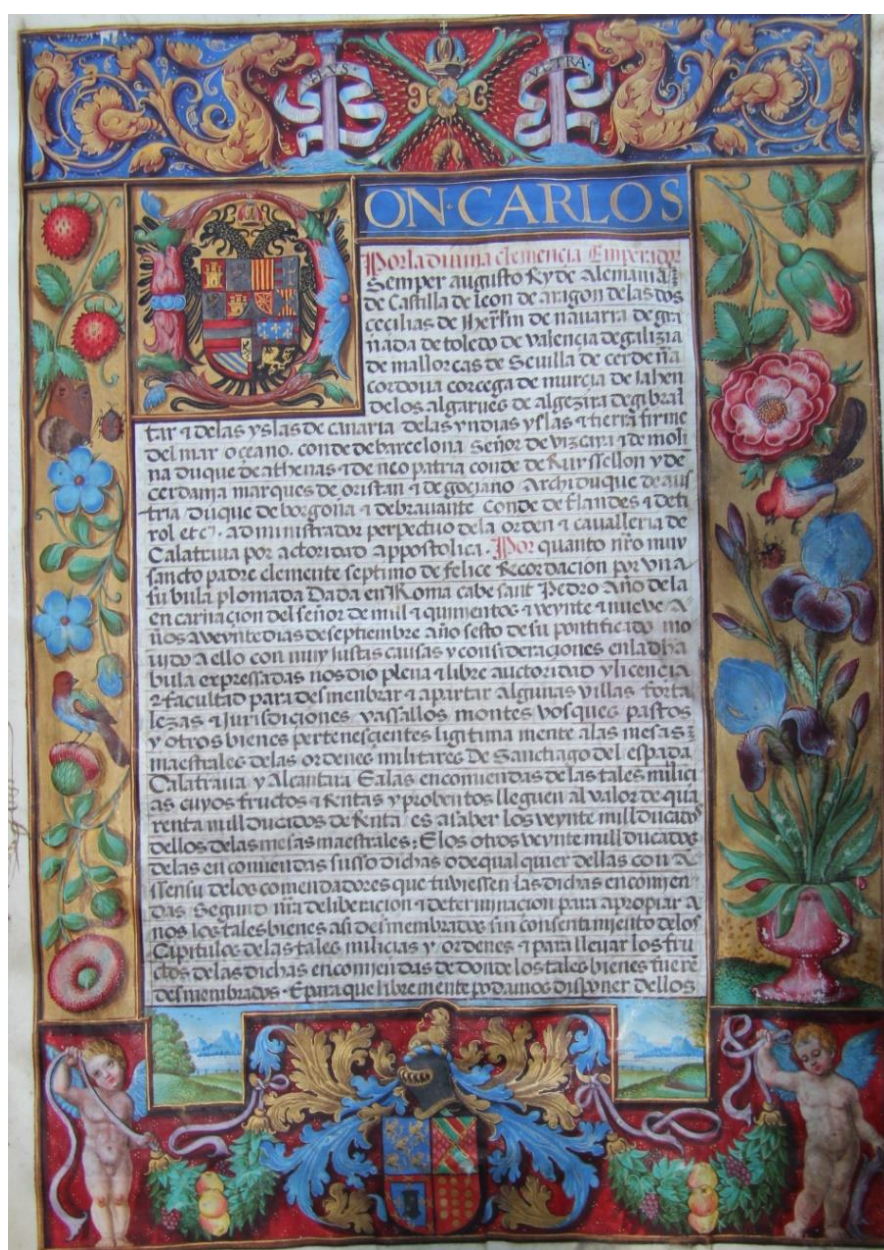 PLVS
VLTRA
ON·CARLOS
Por la divina clemencia Emperador
Semper augusto Rey de alemania
de Castilla de leon de aragon de las dos
cecilias de Jherlm de navarra de gra
nada de toledo de valencia de galizia
de mallorcas de Sevilla de cerdeña
cordova corcega de murcia de Jahen
de los algarves de algezira de gibral
tar & de las yslas de canaria de las yndias yslas & tierra firme
del mar oceano. conde de barcelona Señor de vizcaia & de moli
na duque de athenas & de neopatria conde de Ruyssellon y de
cerdania marques de oristan & de gociano Archiduque de aus
tria Duque de borgoña & de bravante Conde de flandes & de ti
rol etc. administrador perpectuo de la orden & cavalleria de
Calatrava por actoridad appostolica. Por quanto nro muy
sancto padre clemente septimo de felice Recordacion por vna
su bula plomada Dada en Roma cabe sant Pedro Año de la
encarnacion del señor de mil & quinientos & veynte & nueve a
ños a veynte dias de septiembre año sesto de su pontificado mo
vido a ello con muy justas causas y consideraciones en la dha
bula expressadas nos dio plena & libre auctoridad y licencia
& facultad para desmenbrar & apartar algunas villas forta
lezas & jurisdiciones vassallos montes vosques pastos
y otros bienes pertenescientes ligitima mente a las mesas
maestrales de las ordenes militares De Sanctiago del espada
Calatrava y Alcantara E a las encomiendas de las tales milici
as cuyos fructos & Rentas y proventos lleguen al valor de qua
renta mill ducados de Renta es a saber los veynte mill ducados
dellos de las mesas maestrales: E los otros veynte mill ducados
de las encomiendas susso dichas o de qual quier dellas con de
ssensu de los comendadores que tuviessen las dichas encomien
das Segund nra deliberacion & determinacion para apropiar a
nos los tales bienes asi desmembrados sin consentimiento de los
Capitulos de las tales milicias y ordenes & para llevar los fru
ctos de las dichas encomiendas de donde los tales bienes fuere
desmembrados. E para que libre mente podamos disponer dellos